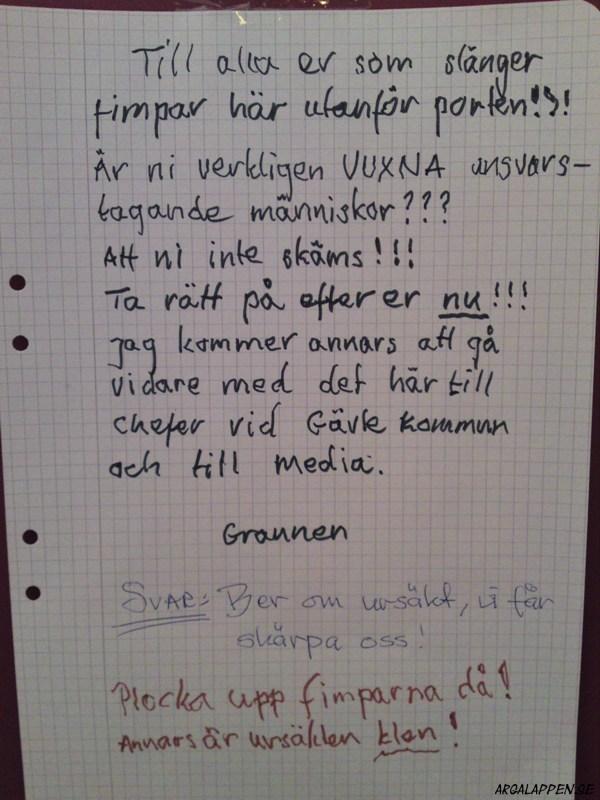 Till alla er som slänger
fimpar här utanför porten!?!
Är ni verkligen VUXNA ansvars-
tagande människor???
Att ni inte skäms!!!
Ta rätt på efter er nu!!!
Jag kommer annars att gå
vidare med det här till
chefer vid Gävle kommun
och till media.
Grannen
SVAR: Ber om ursäkt, vi får
skärpa oss!
Plocka upp fimparna då!
Annars är ursäkten klen!
ARGALAPPEN.SE